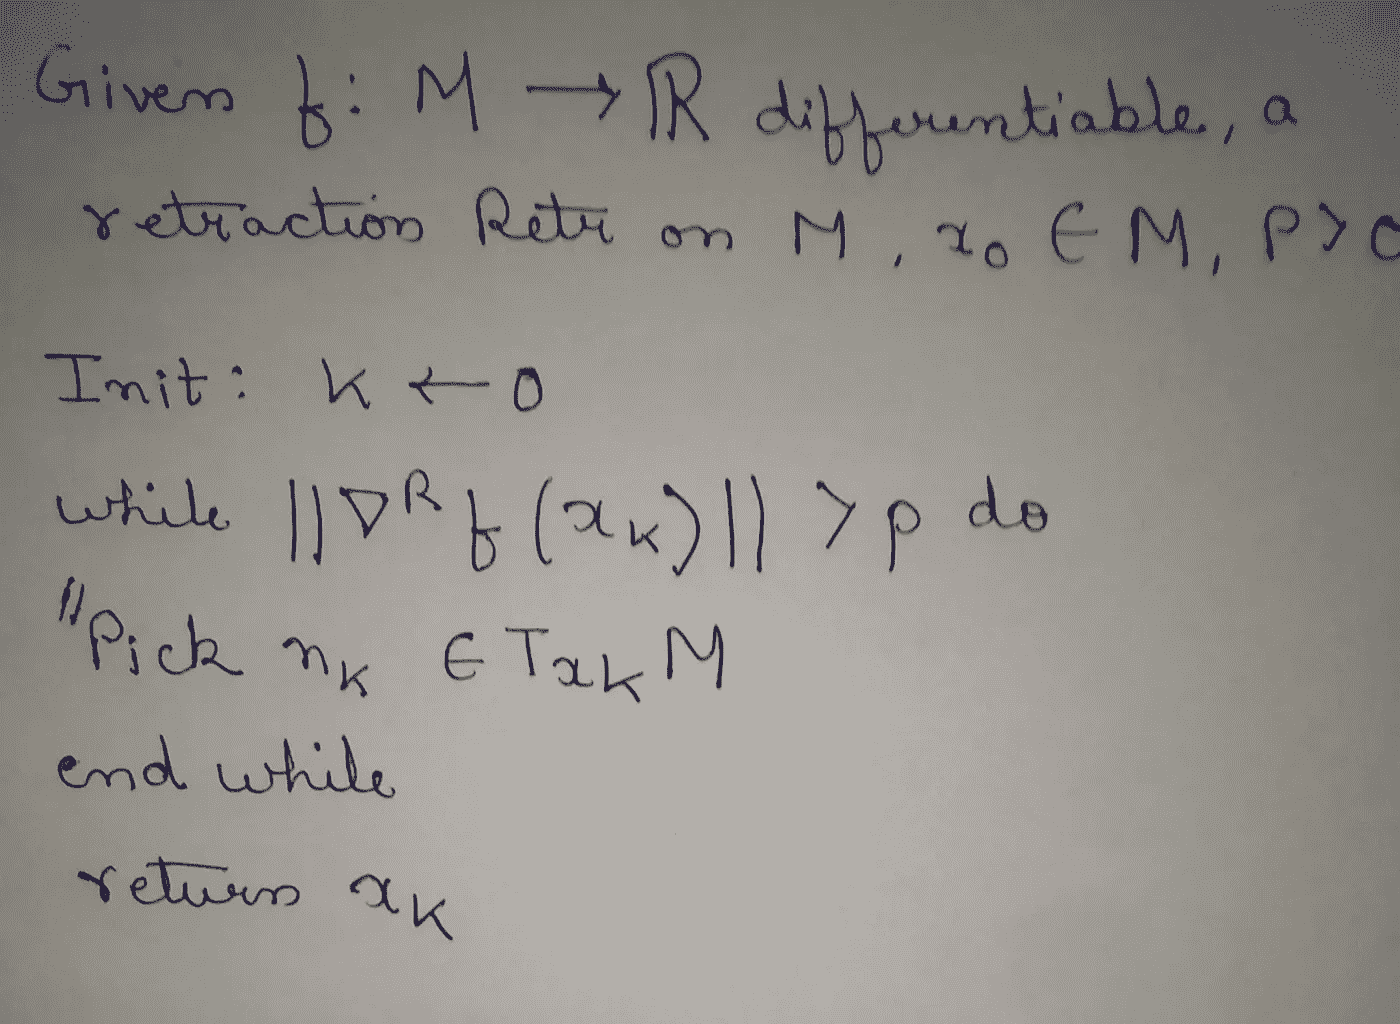 Given f: M → ℝ differentiable, a
retraction Retr on M, x₀ ∈ M, ρ > 0
Init: k ← 0
while ||∇ᴿ f(xₖ)|| > ρ do
"Pick ηₖ ∈ Txₖ M
end while
return xₖ